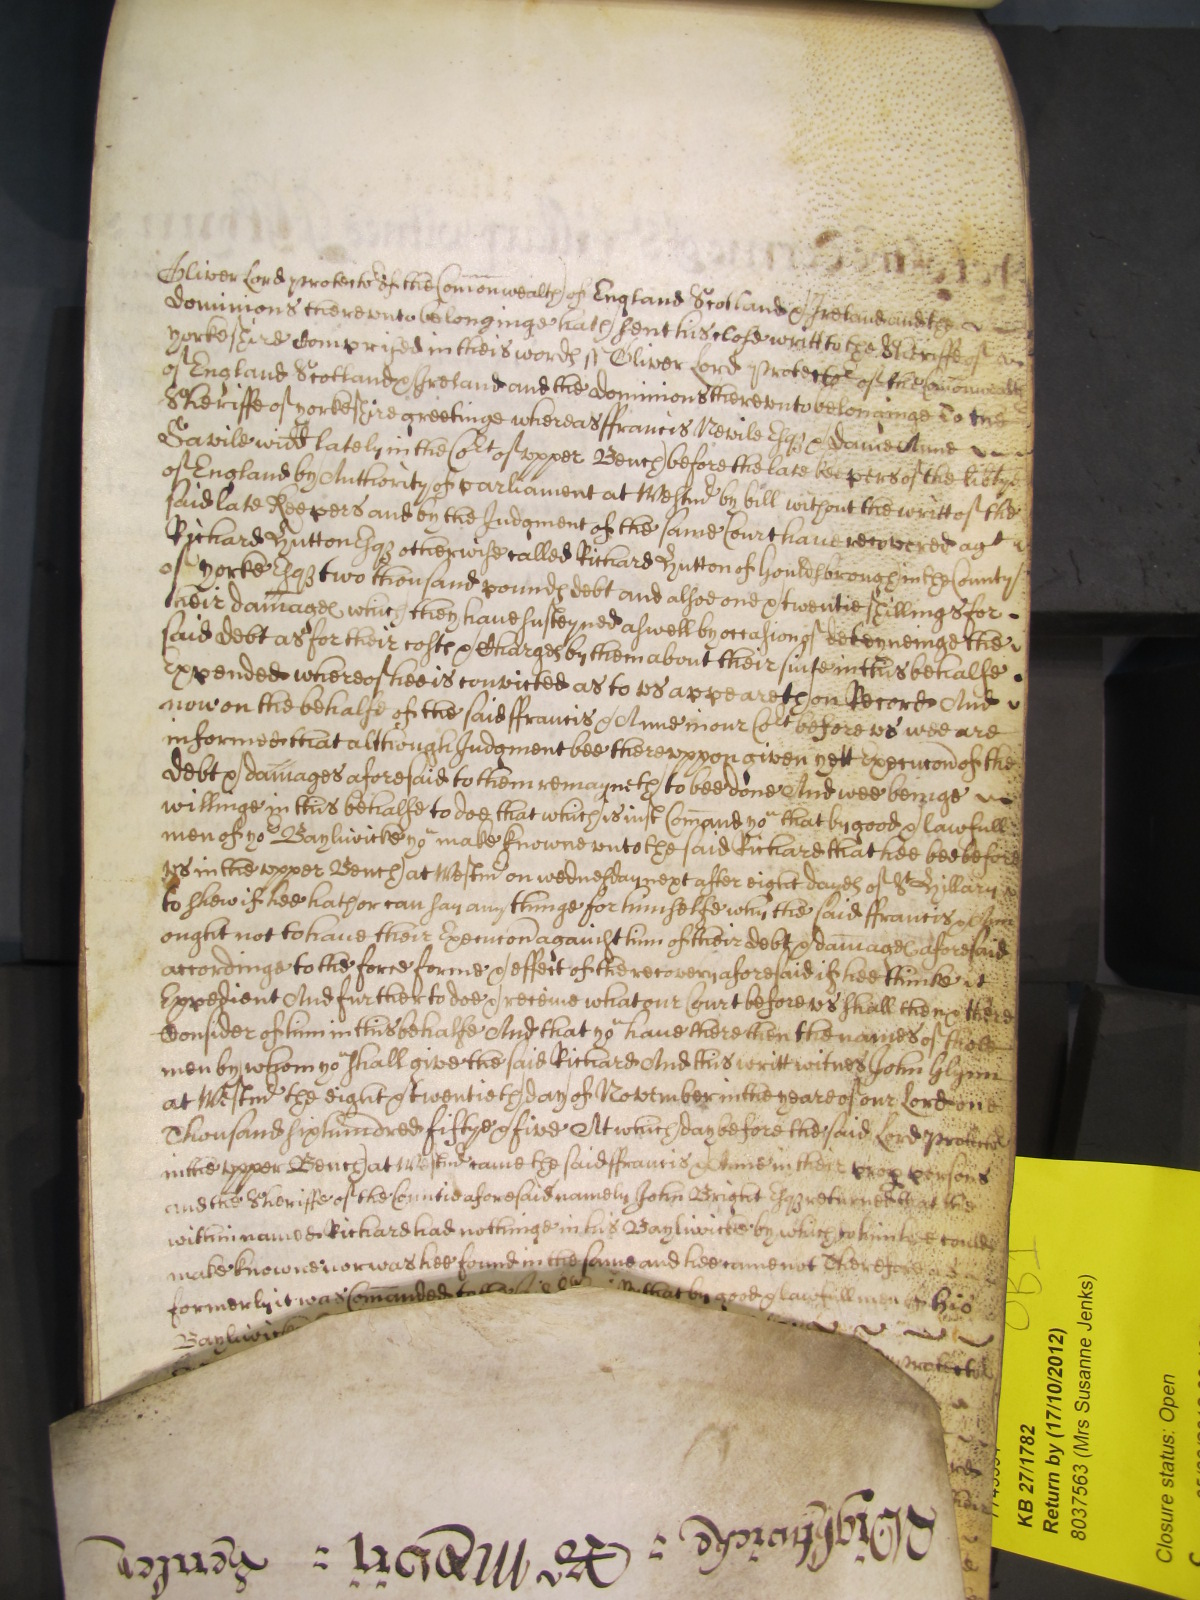 Oliver Lord protector of the Com̄onwealth of England Scotland & Ireland and the
dominions thereunto belonginge hath sent his close writt to the Sheriffe of
Yorkeshire Comprised in theis words ss Oliver Lord Protector of the Com̄onwealth
of England Scotland & Ireland and the dominions thereunto belonginge To the
Sheriffe of Yorkeshire greetinge whereas ffrancis Nevile Esqr & dame Anne
Savile widd lately in the Cort of upper Bench before the late keepers of the libtye
of England by Authority of parliament at Westmr by bill without the writt of the
said late Keepers and by the Judgment of the same Court have recovered agt
Richard Hutton Esqr otherwise called Richard Hutton of Houldsbrough in the County
of Yorke Esqr two thousand pounds debt and alsoe one & twentie shillings for
their damages which they have susteyned aswell by occasion of deteyneinge the
said debt as for their costs & Charges by them about their suite in this behalfe
Expended whereof hee is convicted as to us appeareth on Record And
now on the behalfe of the said ffrancis & Anne in our Cort before us wee are
informed that although Judgment bee thereuppon given yett Execucon of the
debt & damages aforesaid to them remayneth to bee done And wee beinge
willinge in this behalfe to doe that which is just Com̄and yow that by good & lawfull
men of yor Bayliwicke yow make knowne unto the said Richard that hee bee before
us in the upper Bench at Westmr on wednesday next after eight dayes of St Hillary
to shew if hee hath or can say any thinge for himselfe why the said ffrancis & Anne
ought not to have their Execucon against him of their debt & damages aforesaid
accordinge to the force forme & effect of the recovery aforesaid if hee thinke it
Expedient And further to doe & receive what our Court before us shall then & there
Consider of him in this behalfe And that yow have there then the names of those
men by whom yow shall give the said Richard And this writt witnes John Glynn
at Westmr the eight & twentieth day of November in the yeare of our Lord one
Thousand six hundred fiftye & five At which day before the said Lord protector
in the upper Bench at Westmr came the said ffrancis & Anne in their prop persons
and the Sheriffe of the Countie aforesaid namely John Bright Esqr returned that the
within named Richard had nothinge in his Bayliwicke by which to him hee could
make knowne nor was hee found in the same and hee came not Therefore as
formerly it was Com̄anded to the that by good & lawfull men of his
Bayliwicke
protector
Ro Mxvij
KB 27/1782
Return by (17/10/2012)
8037563 (Mrs Susanne Jenks)
Closure status: Open